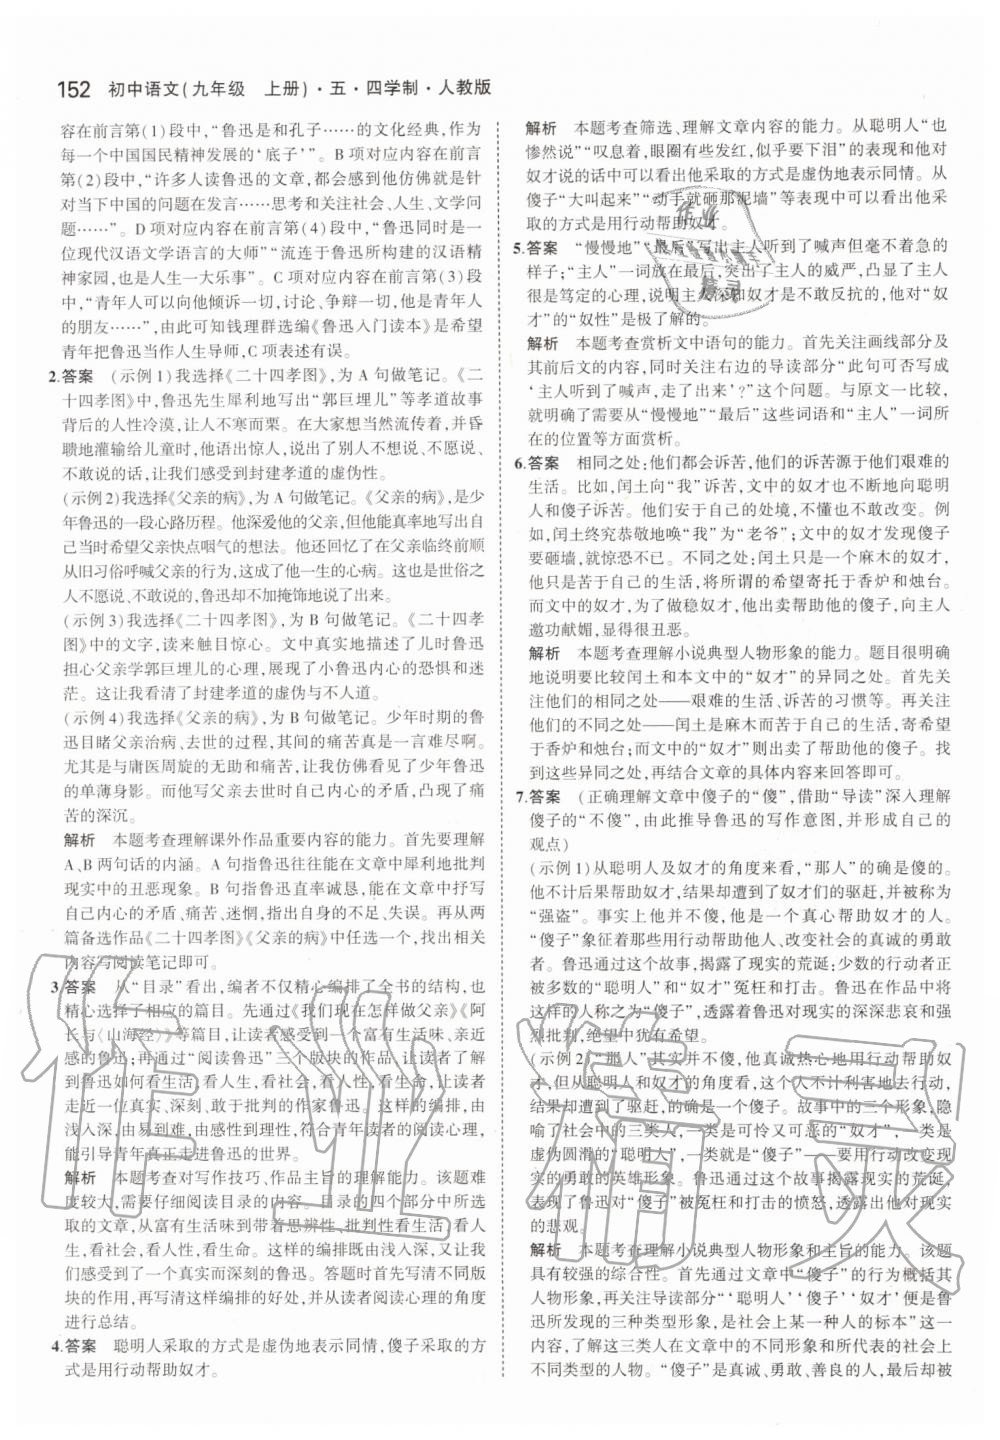 152 初中语文(九年级 上册)·五·四学制·人教版
容在前言第(1)段中,“鲁迅是和孔子……的文化经典,作为
每一个中国国民精神发展的‘底子’”。B 项对应内容在前言
第(2)段中,“许多人读鲁迅的文章,都会感到他仿佛就是针
对当下中国的问题在发言……思考和关注社会、人生、文学问
题……”。D 项对应内容在前言第(4)段中,“鲁迅同时是一
位现代汉语文学语言的大师”“流连于鲁迅所构建的汉语精
神家园,也是人生一大乐事”。C 项对应内容在前言第(3)段
中,“青年人可以向他倾诉一切,讨论、争辩一切,他是青年人
的朋友……”,由此可知钱理群选编《鲁迅入门读本》是希望
青年把鲁迅当作人生导师,C 项表述有误。
2.答案 (示例 1)我选择《二十四孝图》,为 A 句做笔记。《二
十四孝图》中,鲁迅先生犀利地写出“郭巨埋儿”等孝道故事
背后的人性冷漠,让人不寒而栗。在大家想当然流传着,并昏
聩地灌输给儿童时,他语出惊人,说出了别人不想说、不能说、
不敢说的话,让我们感受到封建孝道的虚伪性。
(示例 2)我选择《父亲的病》,为 A 句做笔记。《父亲的病》,是少
年鲁迅的一段心路历程。他深爱他的父亲,但他能真率地写出自
己当时希望父亲快点咽气的想法。他还回忆了在父亲临终前顺
从旧习俗呼喊父亲的行为,这成了他一生的心病。这也是世俗之
人不愿说、不敢说的,鲁迅却不加掩饰地说了出来。
(示例 3)我选择《二十四孝图》,为 B 句做笔记。《二十四孝
图》中的文字,读来触目惊心。文中真实地描述了儿时鲁迅
担心父亲学郭巨埋儿的心理,展现了小鲁迅内心的恐惧和迷
茫。这让我看清了封建孝道的虚伪与不人道。
(示例 4)我选择《父亲的病》,为 B 句做笔记。少年时期的鲁
迅目睹父亲治病、去世的过程,其间的痛苦真是一言难尽啊。
尤其是与庸医周旋的无助和痛苦,让我仿佛看见了少年鲁迅
的单薄身影。而他写父亲去世时自己内心的矛盾,凸显了痛
苦的深沉。
解析 本题考查理解课外作品重要内容的能力。首先要理解
A、B 两句话的内涵。A 句指鲁迅往往能在文章中犀利地批判
现实中的丑恶现象。B 句指鲁迅直率诚恳,能在文章中抒写
自己内心的矛盾、痛苦、迷惘,指出自身的不足、失误。再从两
篇备选作品《二十四孝图》《父亲的病》中任选一个,找出相关
内容写阅读笔记即可。
3.答案 从“目录”看出,编者不仅精心编排了全书的结构,也
精心选择了相应的篇目。先通过《我们现在怎样做父亲》《阿
长与〈山海经〉》等篇目,让读者感受到一个富有生活味、亲近
感的鲁迅;再通过“阅读鲁迅”三个版块的作品,让读者了解
到鲁迅如何看生活、看人生、看社会、看人性、看生命,让读者
走近一位真实、深刻、敢于批判的作家鲁迅。这样的编排,由
浅入深,由感性到理性,符合青年读者的阅读心理,能
吸引青年真正走进鲁迅的世界。
解析 本题考查对写作技巧、作品主旨的理解能力。该题难
度较大,需要仔细阅读目录的内容。目录的四个部分中所选
取的文章,从富有生活味到带着思辨性、批判性看生活、看人
生,看社会、看人性、看生命。这样的编排既由浅入深,又让我
们看到了一个真实而深刻的鲁迅。答题时首先写清不同版
块的作用,再写清这样编排的好处,并从读者阅读心理的角度
进行总结。
4.答案 聪明人采取的方式是虚伪地表示同情,傻子采取的方
式是用行动帮助奴才。
解析 本题考查筛选、理解文章内容的能力。从聪明人“也
惨然说”“叹息着,眼圈有些发红,似乎要下泪”的表现和他对
奴才说的话中可以看出他采取的方式是虚伪地表示同情。从
傻子“大叫起来”“动手就砸那泥墙”等表现中可以看出他采
取的方式是用行动帮助奴才。
5.答案 “慢慢地”“最后”写出主人听到了喊声但毫不着急的
样子;“主人”一词放在最后,突出了主人的威严,凸显了主人
很是笃定的心理,说明主人深知奴才是不敢反抗的,他对“奴
才”的“奴性”是极了解的。
解析 本题考查赏析文中语句的能力。首先关注画线部分及
其前后文的内容,同时关注右边的导读部分“此句可否写成
‘主人听到了喊声,走了出来’?”这个问题。与原文一比较,
就明确了需要从“慢慢地”“最后”这些词语和“主人”一词所
在的位置等方面赏析。
6.答案 相同之处:他们都会诉苦,他们的诉苦源于他们艰难的
生活。比如,闰土向“我”诉苦,文中的奴才也不断地向聪明
人和傻子诉苦。他们安于自己的处境,不懂也不敢改变。例
如,闰土终究恭敬地唤“我”为“老爷”;文中的奴才发现傻子
要砸墙,就惊恐不已。不同之处:闰土只是一个麻木的奴才,
他只关注自己的生活,将所谓的希望寄托于香炉和烛台。
而文中的奴才,为了做稳奴才,他出卖帮助他的傻子,向主人
邀功献媚,显得很丑恶。
解析 本题考查理解小说典型人物形象的能力。题目很明确
地说明要比较闰土和本文中的“奴才”的异同之处。首先关
注他们的相同之处——艰难的生活、诉苦的习惯等。再关注
他们的不同之处——闰土是麻木而安于自己的生活,寄希望
于香炉和烛台;而文中的“奴才”则出卖了帮助他的傻子。找
到这些异同之处,再结合文章的具体内容来回答即可。
7.答案 (正确理解文章中傻子的“傻”,借助“导读”深入理解
傻子的“不傻”,由此推导鲁迅的写作意图,并形成自己的
观点)
(示例 1)从聪明人及奴才的角度来看,“那人”的确是傻的。
他不计后果帮助奴才,结果却遭到了奴才们的驱赶,并被称为
“强盗”。事实上他并不傻,他是一个真心帮助奴才的人。
“傻子”象征着那些用行动帮助他人、改变社会的真诚的勇敢
者。鲁迅通过这个故事,揭露了现实的荒诞:少数的行动者正
被多数的“聪明人”和“奴才”冤枉和打击。鲁迅在作品中并
没有批判“傻子”,这透露着鲁迅对现实的深深悲哀和强
烈批判,绝望中犹有希望。
(示例 2)“那人”其实并不傻,他真诚热心地用行动帮助奴
才,但从聪明人和奴才的角度来看,这个人不计利害地去行动,
结果却遭到了驱赶,的确是一个傻子。故事中的三个形象,隐
喻了社会中的三类人,一类是可怜又可恶的“奴才”,一类是
虚伪圆滑的“聪明人”,一类是“傻子”——要用行动改变现
实的勇敢的英雄形象。鲁迅通过这则故事,揭露现实的荒诞,
表现了鲁迅对“傻子”被冤枉和打击的愤怒,还表现了现实
的悲观。
解析 本题考查理解小说典型人物形象和主旨的能力。该题
具有较强的综合性。首先通过文章中“傻子”的行为概括其
人物形象,再关注导读部分中“‘聪明人’‘傻子’‘奴才’是鲁
迅所发现的三种类型形象,是社会上某一种人的标本”这一
内容,了解这三类人在文学作品中的形象和所代表的社会上
不同类型的人物。“傻子”是真诚、勇敢、善良的人,最后却被
作业精灵